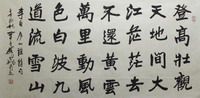 登高壯觀
天地間大
江茫茫去
不還黃雲
萬里動風
色白波九
道流雪山